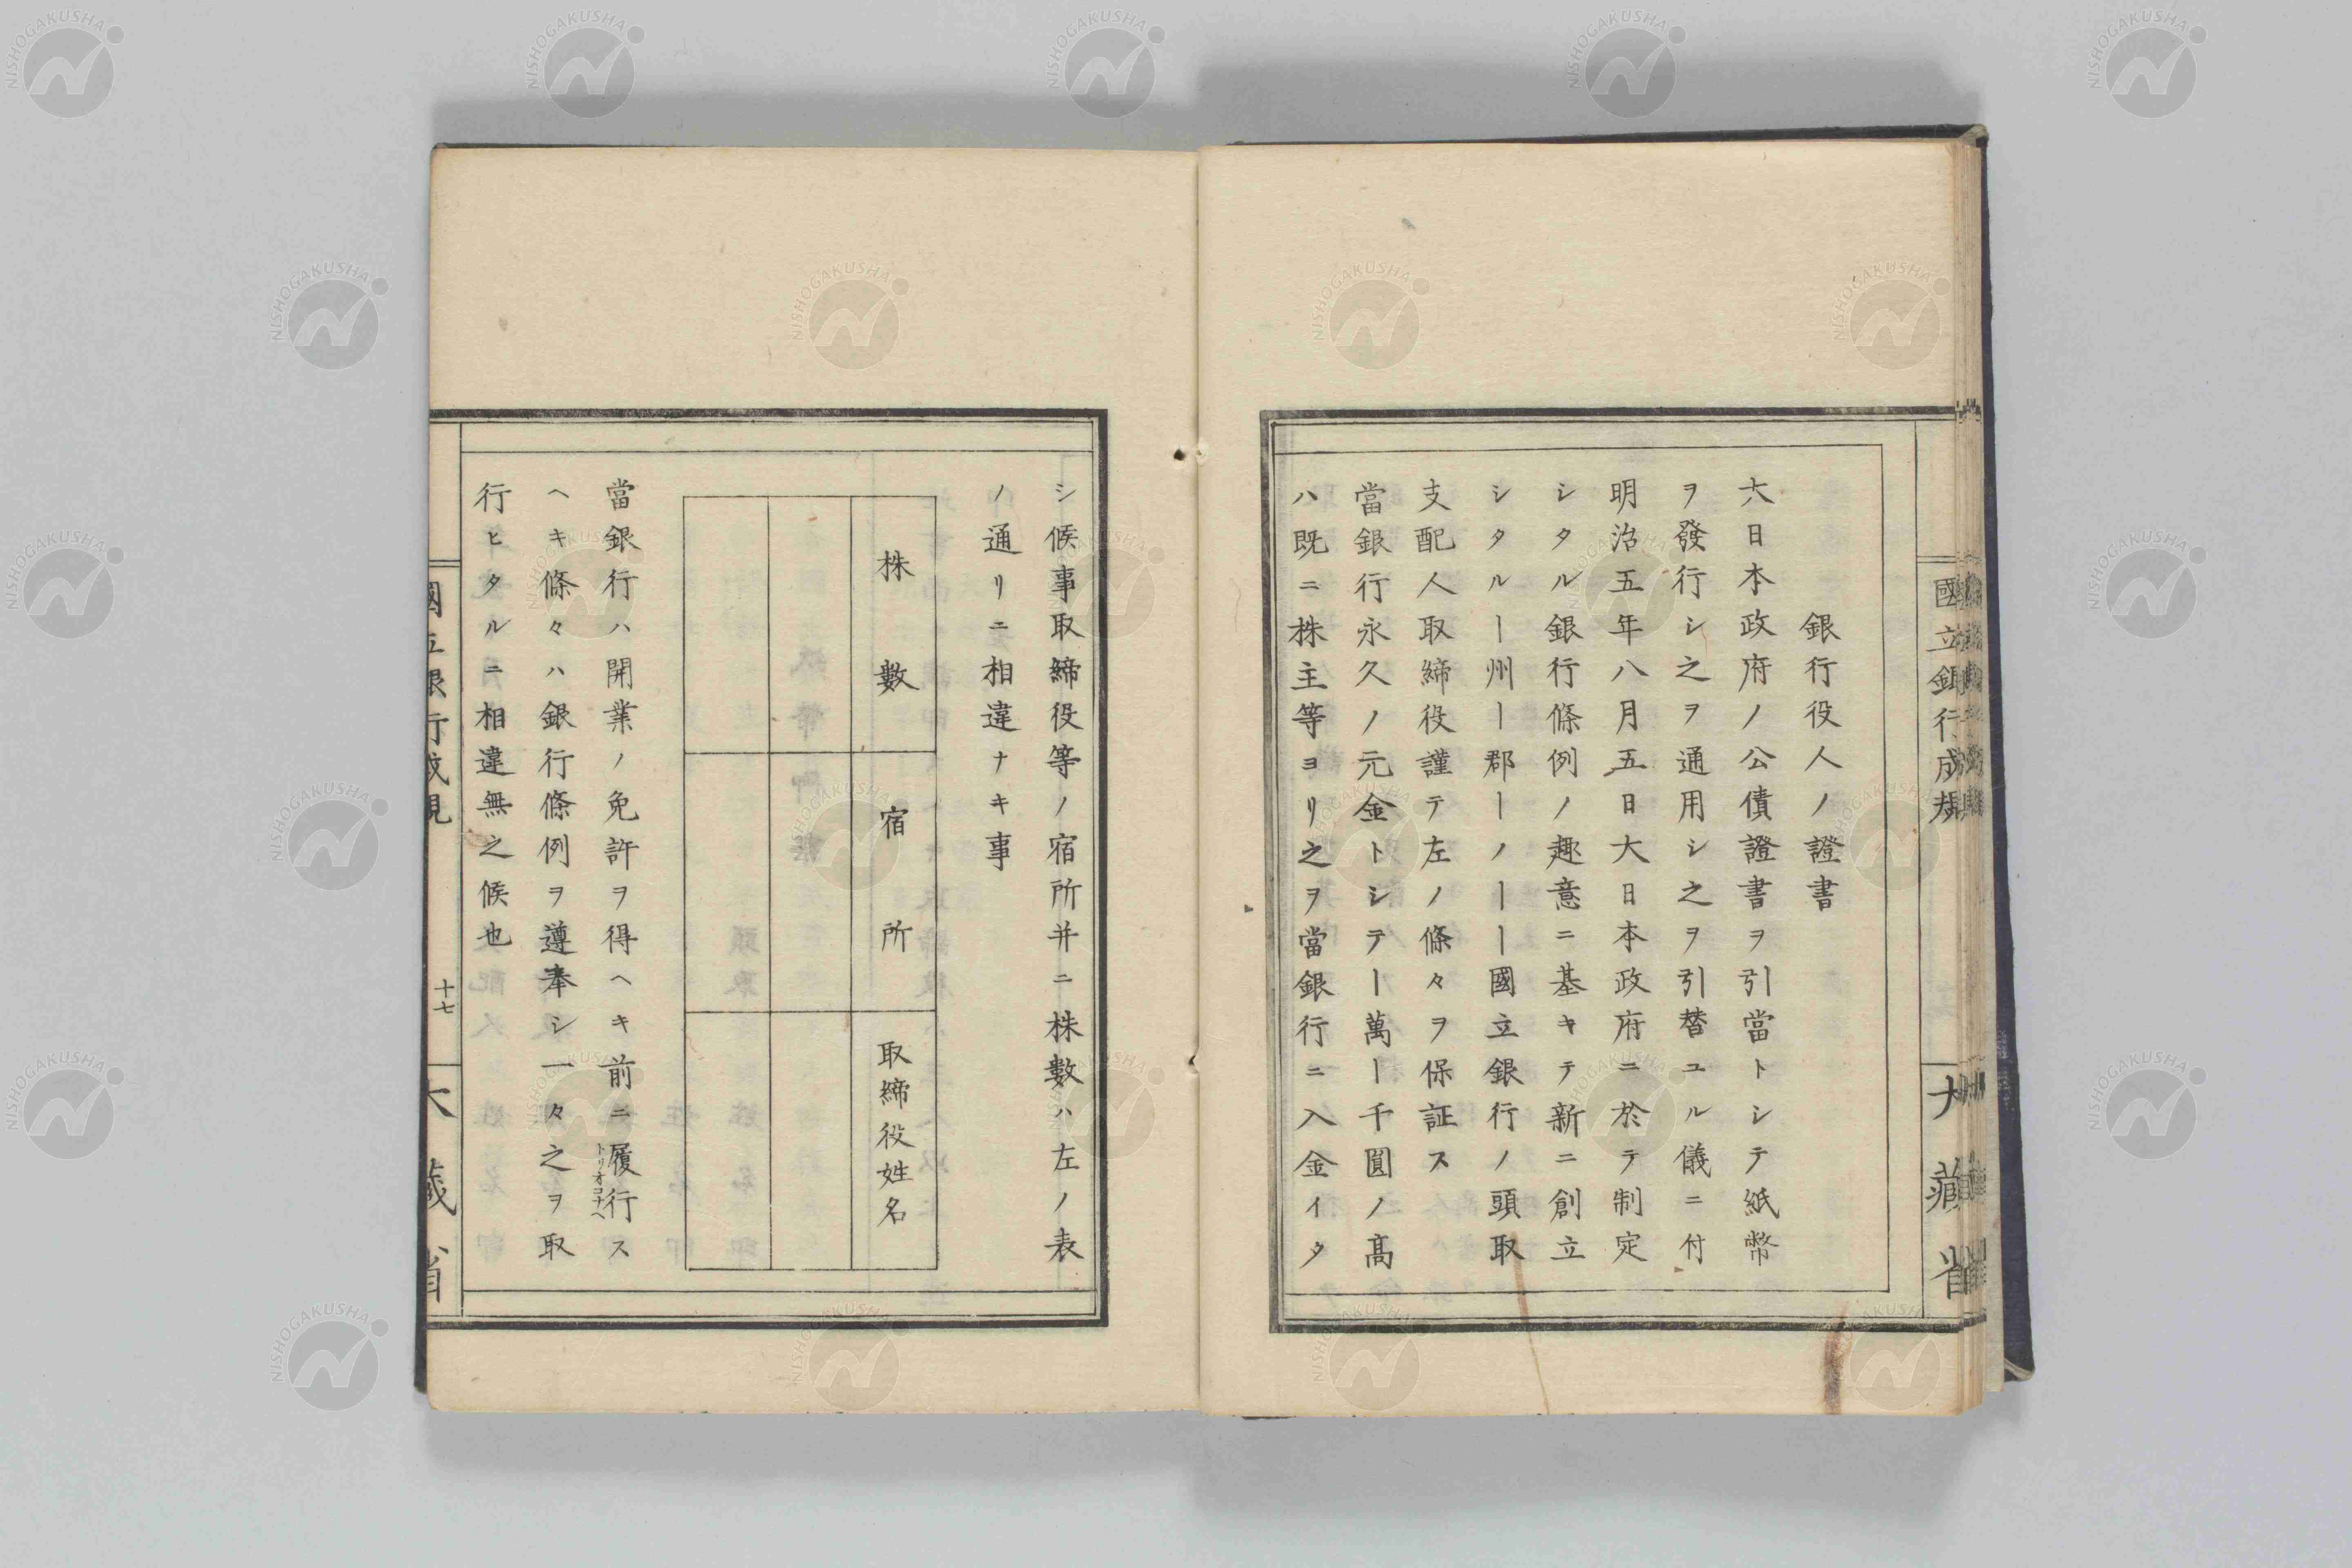 國立銀行成規
大藏省
銀行役人ノ證書
大日本政府ノ公債證書ヲ引當トシテ紙幣
ヲ發行シ之ヲ通用シ之ヲ引替ユル儀ニ付
明治五年八月五日大日本政府ニ於テ制定
シタル銀行條例ノ趣意ニ基キテ新ニ創立
シタル―州―郡―ノ――國立銀行ノ頭取
支配人取締役謹テ左ノ條々ヲ保証ス
當銀行永久ノ元金トシテ―萬―千圓ノ高
ハ既ニ株主等ヨリ之ヲ當銀行ニ入金イタ
シ候事取締役等ノ宿所并ニ株數ハ左ノ表
ノ通リニ相違ナキ事
株數
宿所
取締役姓名
當銀行ハ開業ノ免許ヲ得ヘキ前ニ履行ス
トリオコナヘ
ヘキ條々ハ銀行條例ヲ遵奉シ一々之ヲ取
行ヒタルニ相違無之候也
國立銀行成規
十七
大藏省
NISHOGAKUSHA